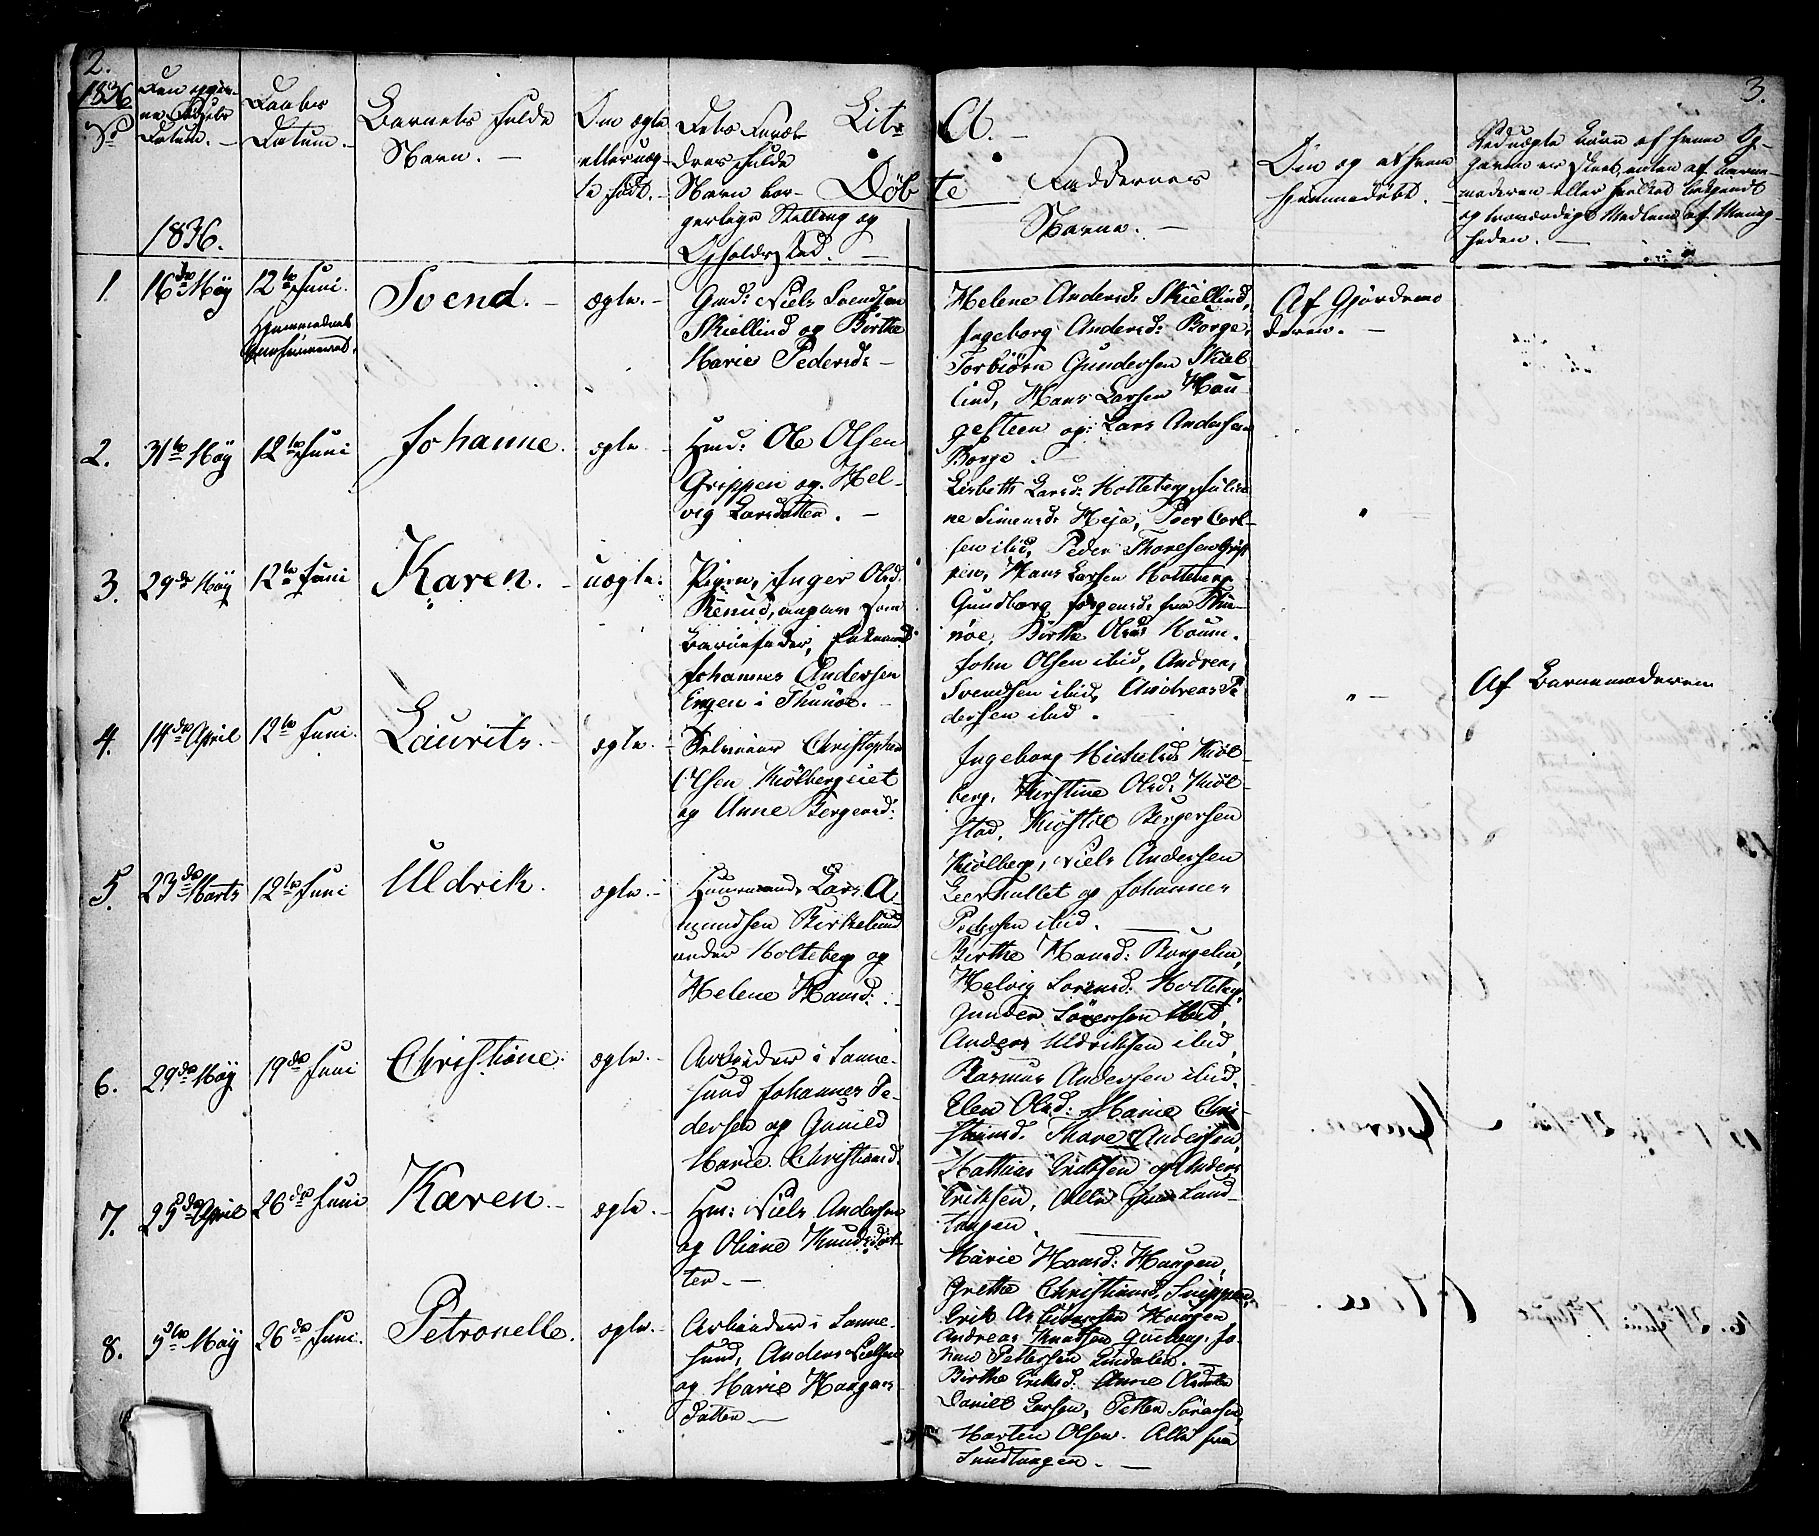 2.
3.
1836
No
Den opgiv-
ne Fødsels
Datum. -
Daabs
Datum. -
Barnets fulde
Navn. -
Om ægte
eller uæg-
te født. -
Dets Foræl-
dres fulde
Navn bor-
gerlige Stilling og
Opholdssted. -
Litr A. -
Døbte
Faddernes
Navne. -
Om og af hvem
hjemmedøbt. -
Ved uægte Børn af hvem Op-
gaven er skeet, enten af Barne-
moderen eller hvilket bekjendt
og troværdigt Medlem af Menig-
heden. -
1836.
1.
16de May
12te Juni.
Hjemmedaab
Svend. -
ægte. -
Gmd: Niels Svendsen
Skiellind og Birthe
Marie Pedersd: -
Helene Andersd: Skiellind,
Ingeborg Andersd: Borge,
Torbiørn Gundersen Skiel-
lind, Hans Larsen Hau-
gesteen og Lars Andersen
Borge. -
Af Gjordemo
deren. -
2.
31te May
12te Juni
Johanne.
ægte. -
Hmd: Ole Olsen
Grippen og Hel-
vig Larsdatter. -
Lisbeth Larsd: Holteberg, Julia-
ne Simensd: Heja, Peer Carl-
sen ibid, Peder Thoresen Grip
pen, Hans Larsen Holteberg.
3.
29de May
12te Juni
Karen. -
uægte.
Pigen, Inger Olsd:
angav som
Barnefader, Enkemand
Johannes Andersen
Engen i Thunøe. -
Gundborg Jørgensd: fra Thu-
nøe, Birthe Olsd: Houm.
John Olsen ibid, Andreas
Svendsen ibid, Andreas Pe
dersen ibid. -
Af Barnemoderen
4.
14de April
12te Juni.
Laurits. -
ægte. -
Selveier Christopher
Olsen Kiølberg
og Anne Bergersd:
Ingeborg Michelsd: Kiøl-
berg, Kirstine Olsd: Kiøl-
stad, Kiøstol Bergersen
Kiølberg, Niels Andersen
Leerhullet og Johannes
Pedersen ibid. -
5.
23de Marts
12te Juni
Uldrik.
ægte. -
Huusmand Lars A-
mundsen Birkelund
under Holteberg og
Helene Hansd:
Birthe Hansd: Borgelin,
Helvig Sørensd: Holteberg,
Gunder Sørensen ibid,
Anders Uldriksen ibid,
Rasmus Andersen ibid.
6.
29de May
19de Juni
Christiane.
ægte. -
Arbeider i Sanne-
sund Johannes Pe-
dersen og Gunild
Marie Christiansd.
Elen Olsd: Marie Chri-
stiansd. Thore Andersen,
Mathias Eriksen og Anders
Eriksen, Alle fra Sand-
tangen.
7.
25de April
26de Juni
Karen. -
ægte. -
Hm: Niels Andersen
og Oliane Knudsdat-
ter. -
Marie Hansd: Haugen,
Grethe Christiansd, Snippen,
Erik Haugen
Andreas Knudsen Jo-
han Pettersen Lindalen. -
8.
5te May
26de Juni.
Petronelle.
ægte. -
Arbeider i Sanne-
sund, Anders Nielsen
og Marie Haagens
Datter. -
Birthe Eriksd: Anne Olsdatter
Daniel Larsen, Petter Sørensen,
Morten Olsen. Alle fra
Sandtangen. -
Maren.